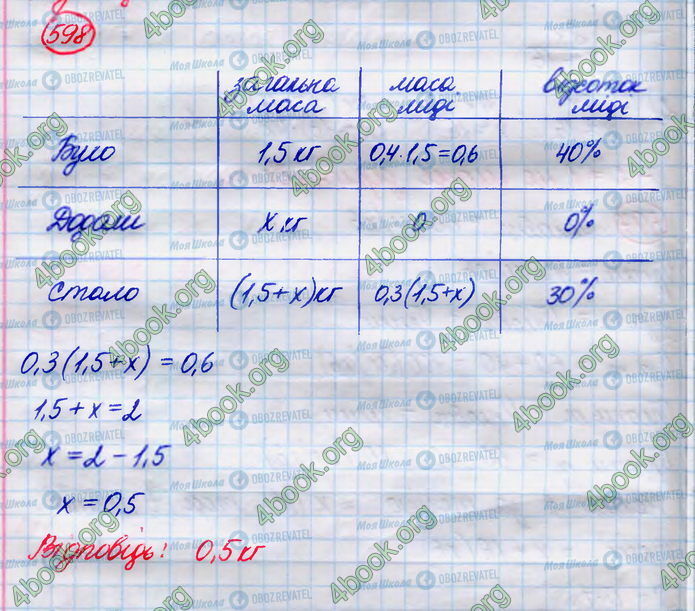 598
загальна маса | маса міді | відсоток міді
Було | 1,5 кг | 0,4·1,5=0,6 | 40%
Додали | x кг | 0 | 0%
Стало | (1,5+x)кг | 0,3(1,5+x) | 30%
0,3(1,5+x) = 0,6
1,5+x=2
x=2-1,5
x=0,5
Відповідь: 0,5кг
4book.org
Моя Школа OBOZREVATEL